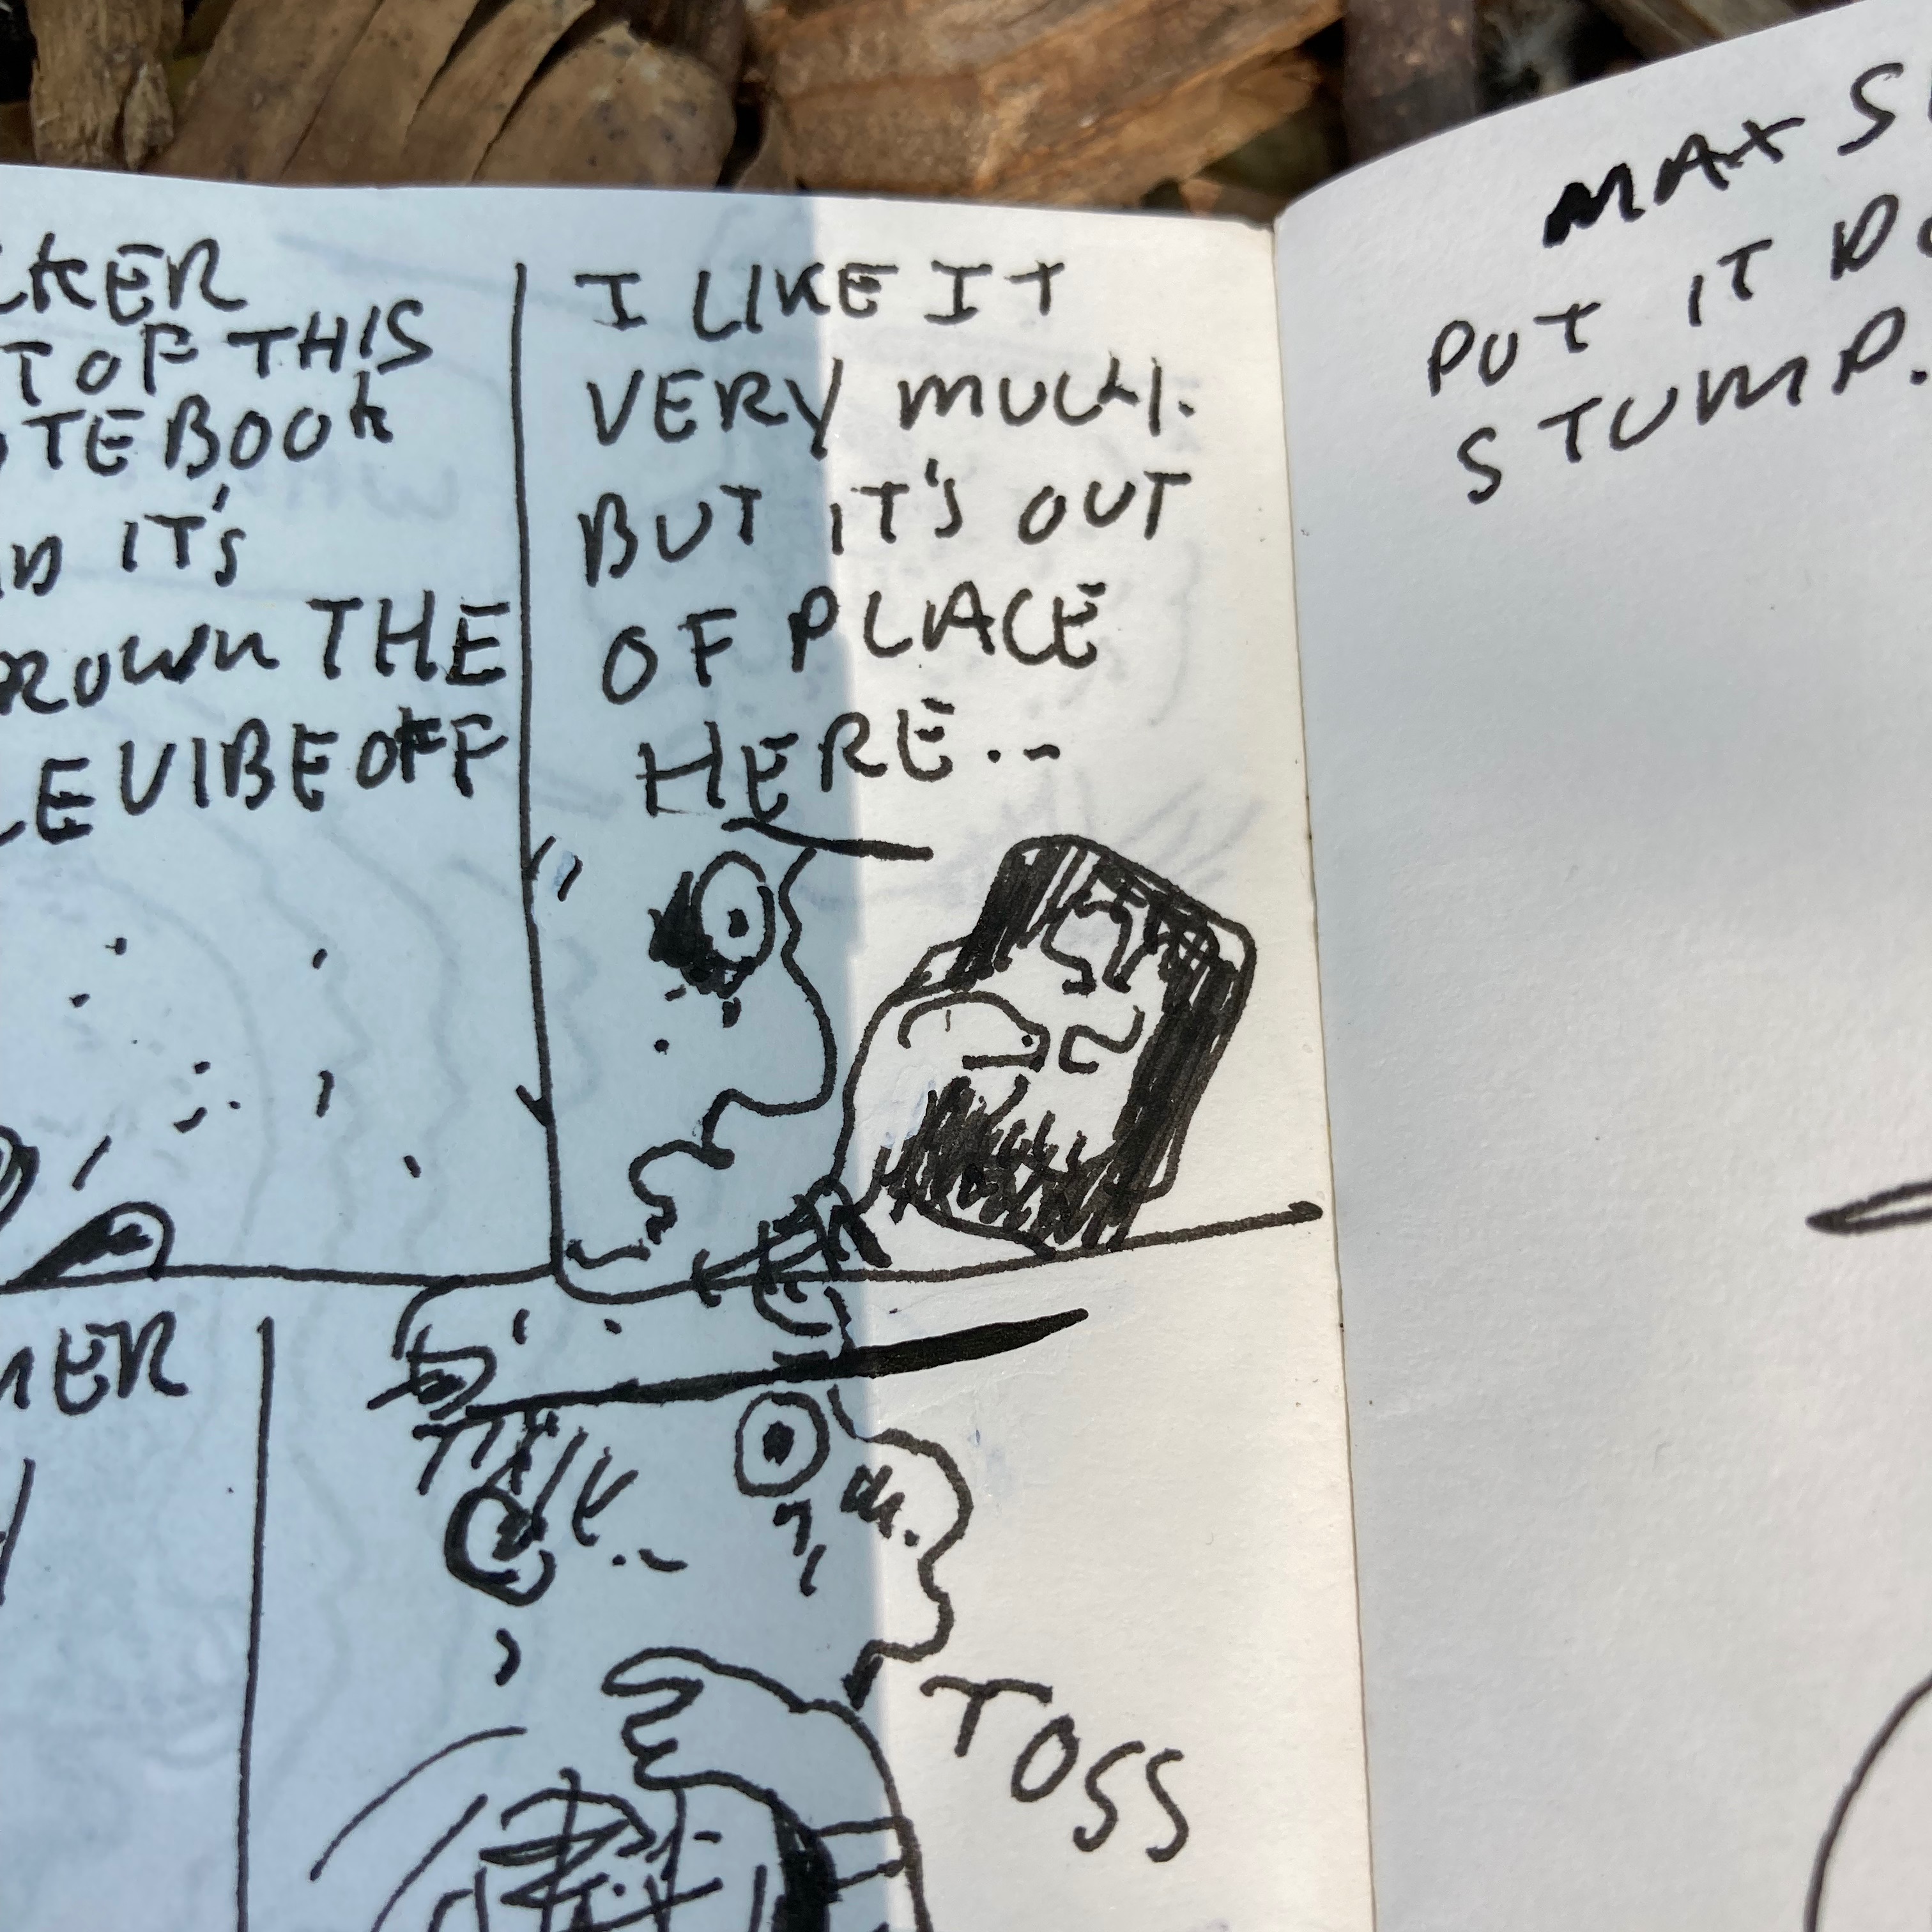 CKER
T OF THIS
OTEBOOK
IT'S
ROWN THE
LE VIBE OFF
I LIKE IT
VERY MUCH.
BUT IT'S OUT
OF PLACE
HERE..
MER
TOSS
MAX
PUT IT
STUMP.